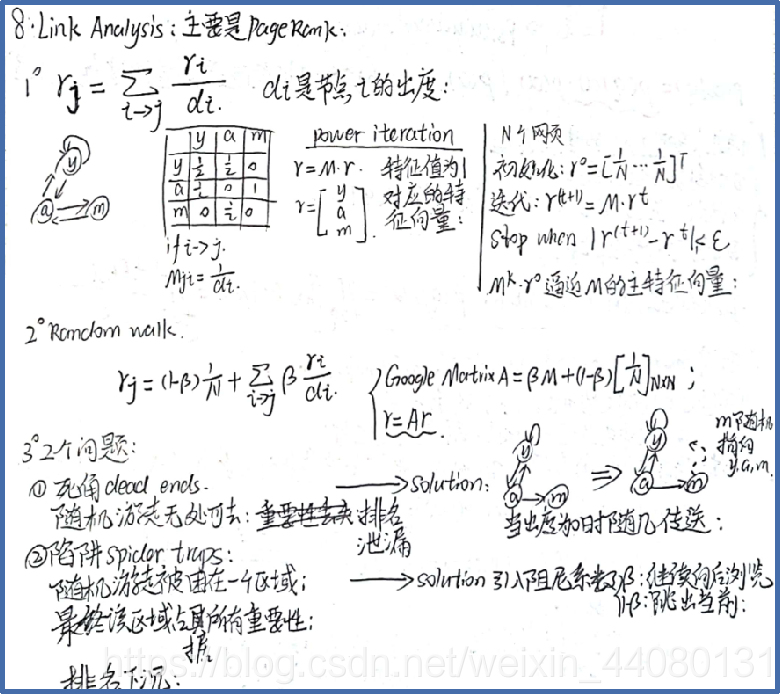 8. Link Analysis: 主要是PageRank.
1° rj = Σi→j ri/di. di是节点i的出度:
y a m
y 1/2 1/2 0
a 1/2 0 1
m 0 1/2 0
if i→j.
Mji = 1/di.
y
a m
power iteration
r = M·r. 特征值为1
对应的特
征向量:
r = [y a m].
N个网页
初始化: r⁰ = [1/N ⋯ 1/N]ᵀ
迭代: r⁽ᵗ⁺¹⁾ = M·rᵗ
Stop when |r⁽ᵗ⁺¹⁾ - rᵗ| < ε
Mᵏ·r⁰ 逼近M的主特征向量:
2° Random walk.
rj = (1-β) 1/N + Σi→j β ri/di.
Google Matrix A = βM + (1-β)[1/N]N×N ;
r = Ar.
3° 2个问题:
① 死角 dead ends.
随机游走无处可去: 排名
泄漏
→ solution:
y
a m
⇒
y
a m
m随机
指向
y,a,m.
当出度为0时随机传送:
② 陷阱 spider traps:
随机游走被困在一个区域;
最终该区域占据所有重要性;
→ solution 引入阻尼系数β: β:继续向后浏览
1-β: 跳出当前;
排名下沉:
https://blog.csdn.net/weixin_44080131